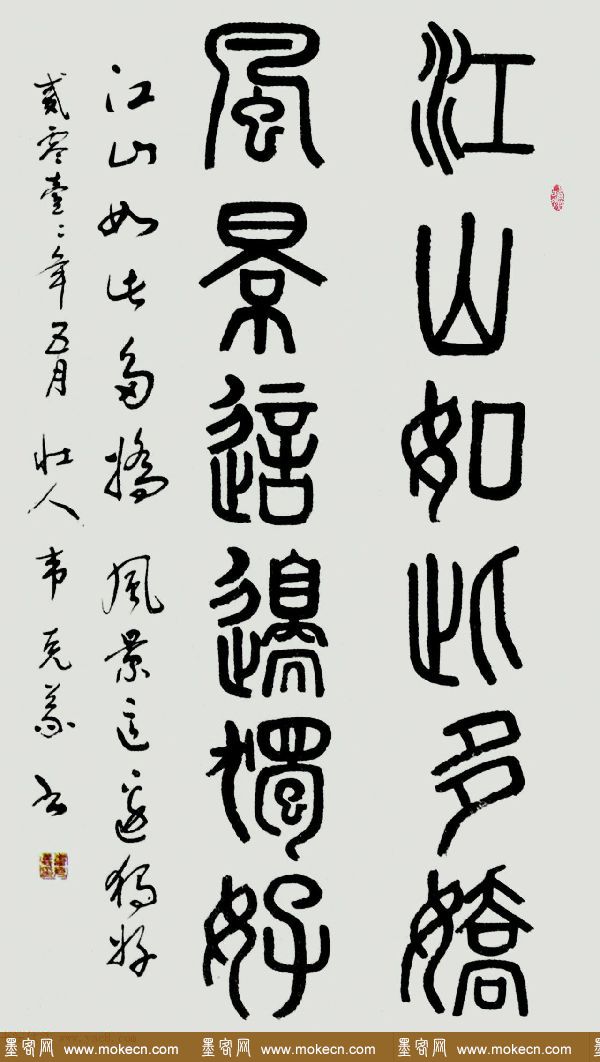 江山如此多嬌
風景這邊獨好
江山如此多嬌 風景這邊獨好
貳零壹〻年五月 壮人 韦克義 书
墨客网 www.mokecn.com 墨客网 www.mokecn.com 墨客网 www.mokecn.com